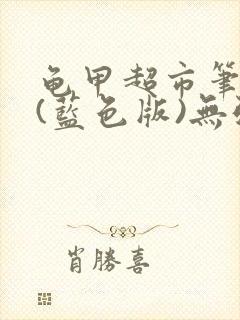 龟甲超市筆
(藍色版)無
肖勝喜